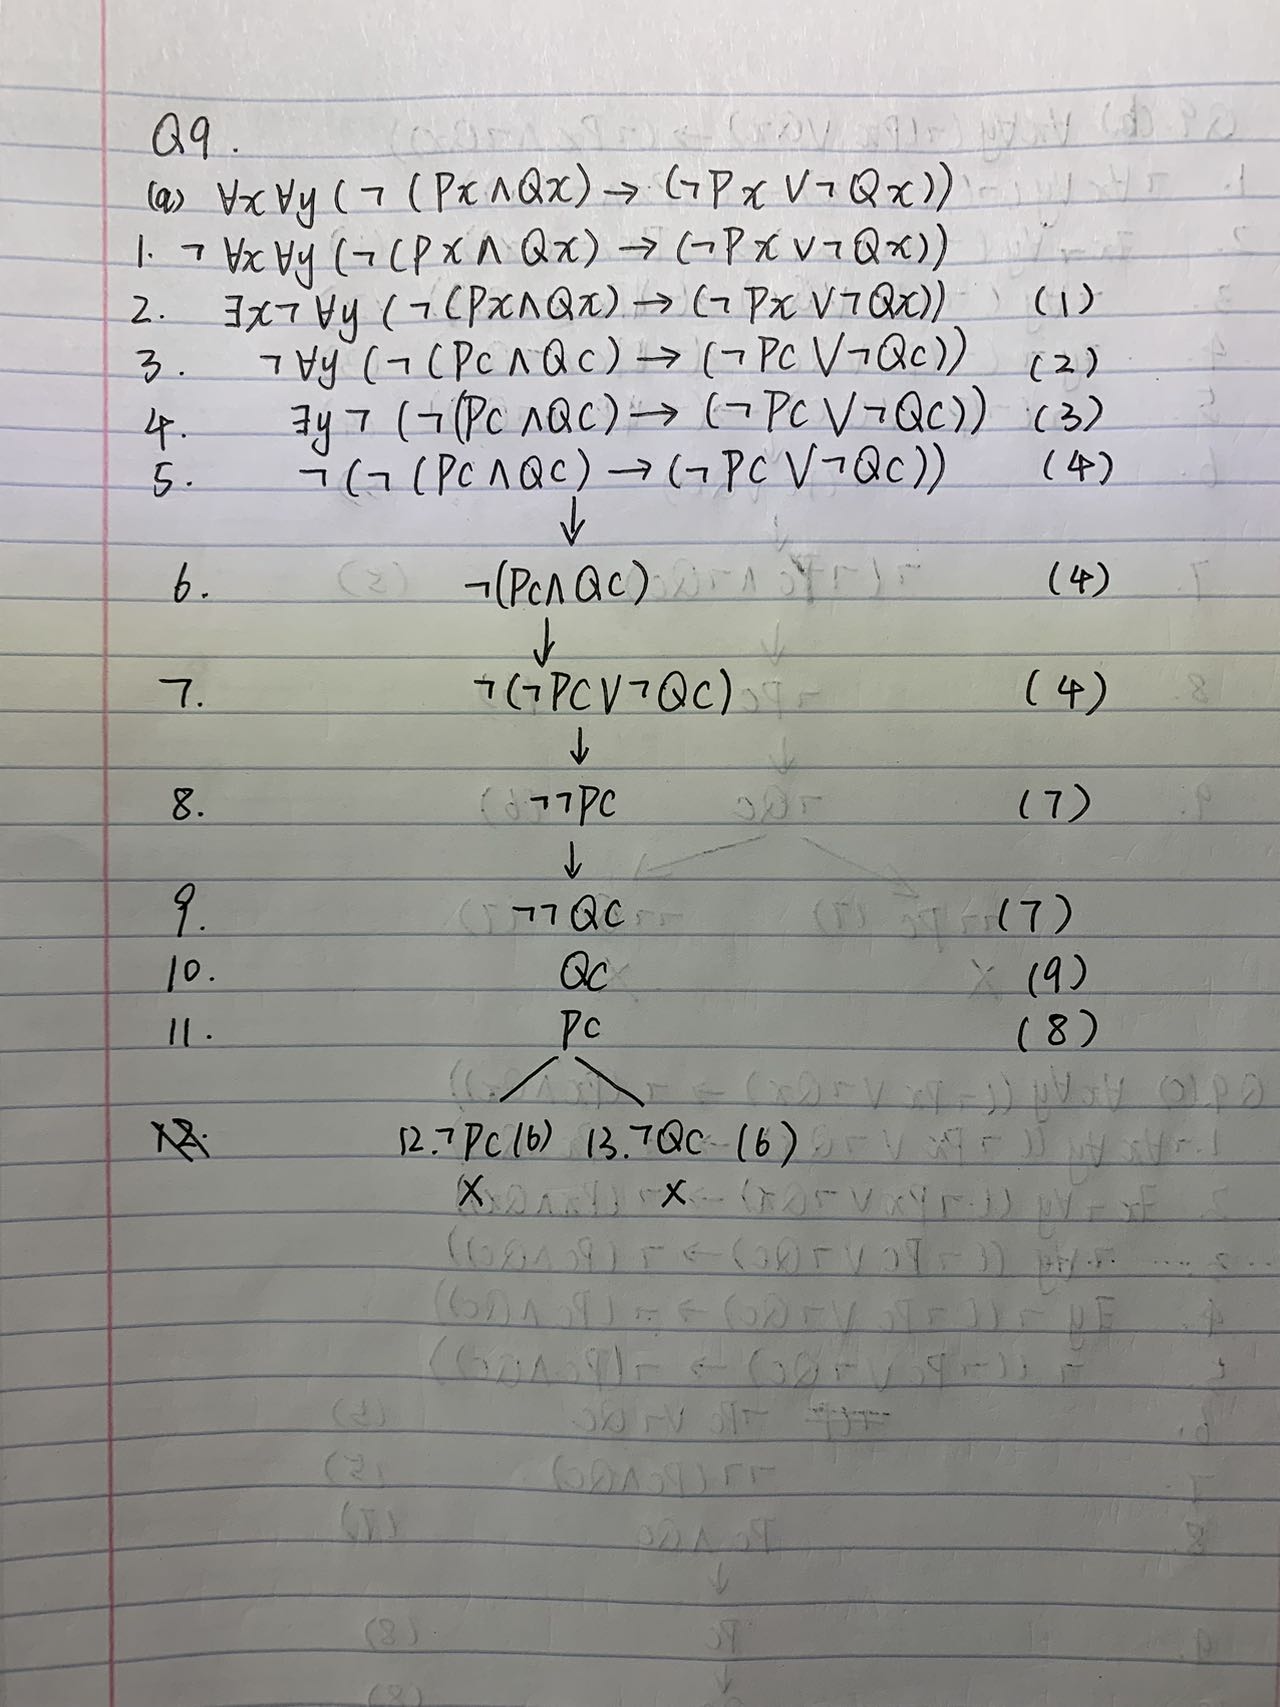 Q9.
(a) ∀x∀y(¬(Px∧Qx)→(¬Px∨¬Qx))
1. ¬∀x∀y(¬(Px∧Qx)→(¬Px∨¬Qx))
2. ∃x¬∀y(¬(Px∧Qx)→(¬Px∨¬Qx)) (1)
3. ¬∀y(¬(Pc∧Qc)→(¬Pc∨¬Qc)) (2)
4. ∃y¬(¬(Pc∧Qc)→(¬Pc∨¬Qc)) (3)
5. ¬(¬(Pc∧Qc)→(¬Pc∨¬Qc)) (4)
↓
6. ¬(Pc∧Qc) (4)
↓
7. ¬(¬Pc∨¬Qc) (4)
↓
8. ¬¬Pc (7)
↓
9. ¬¬Qc (7)
10. Qc (9)
11. Pc (8)
12. ¬Pc (6) 13. ¬Qc (6)
x x